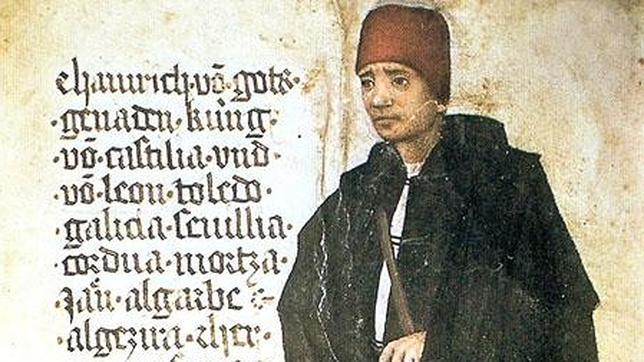 hainrich · võ · gots ·
· genaden · küng ·
· võ · castilia · vnd ·
· võ · leon · toledo ·
· galicia · seuillia ·
· cordua · mortza ·
· Jan̄ · algarbe
· algezira ·